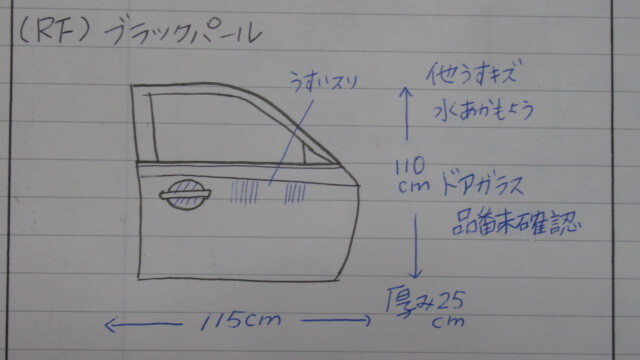 (RF) ブラックパール
うすいスリ
他うすキズ
水あかもよう
110
cm
ドアガラス
品番未確認
厚み25
cm
115cm